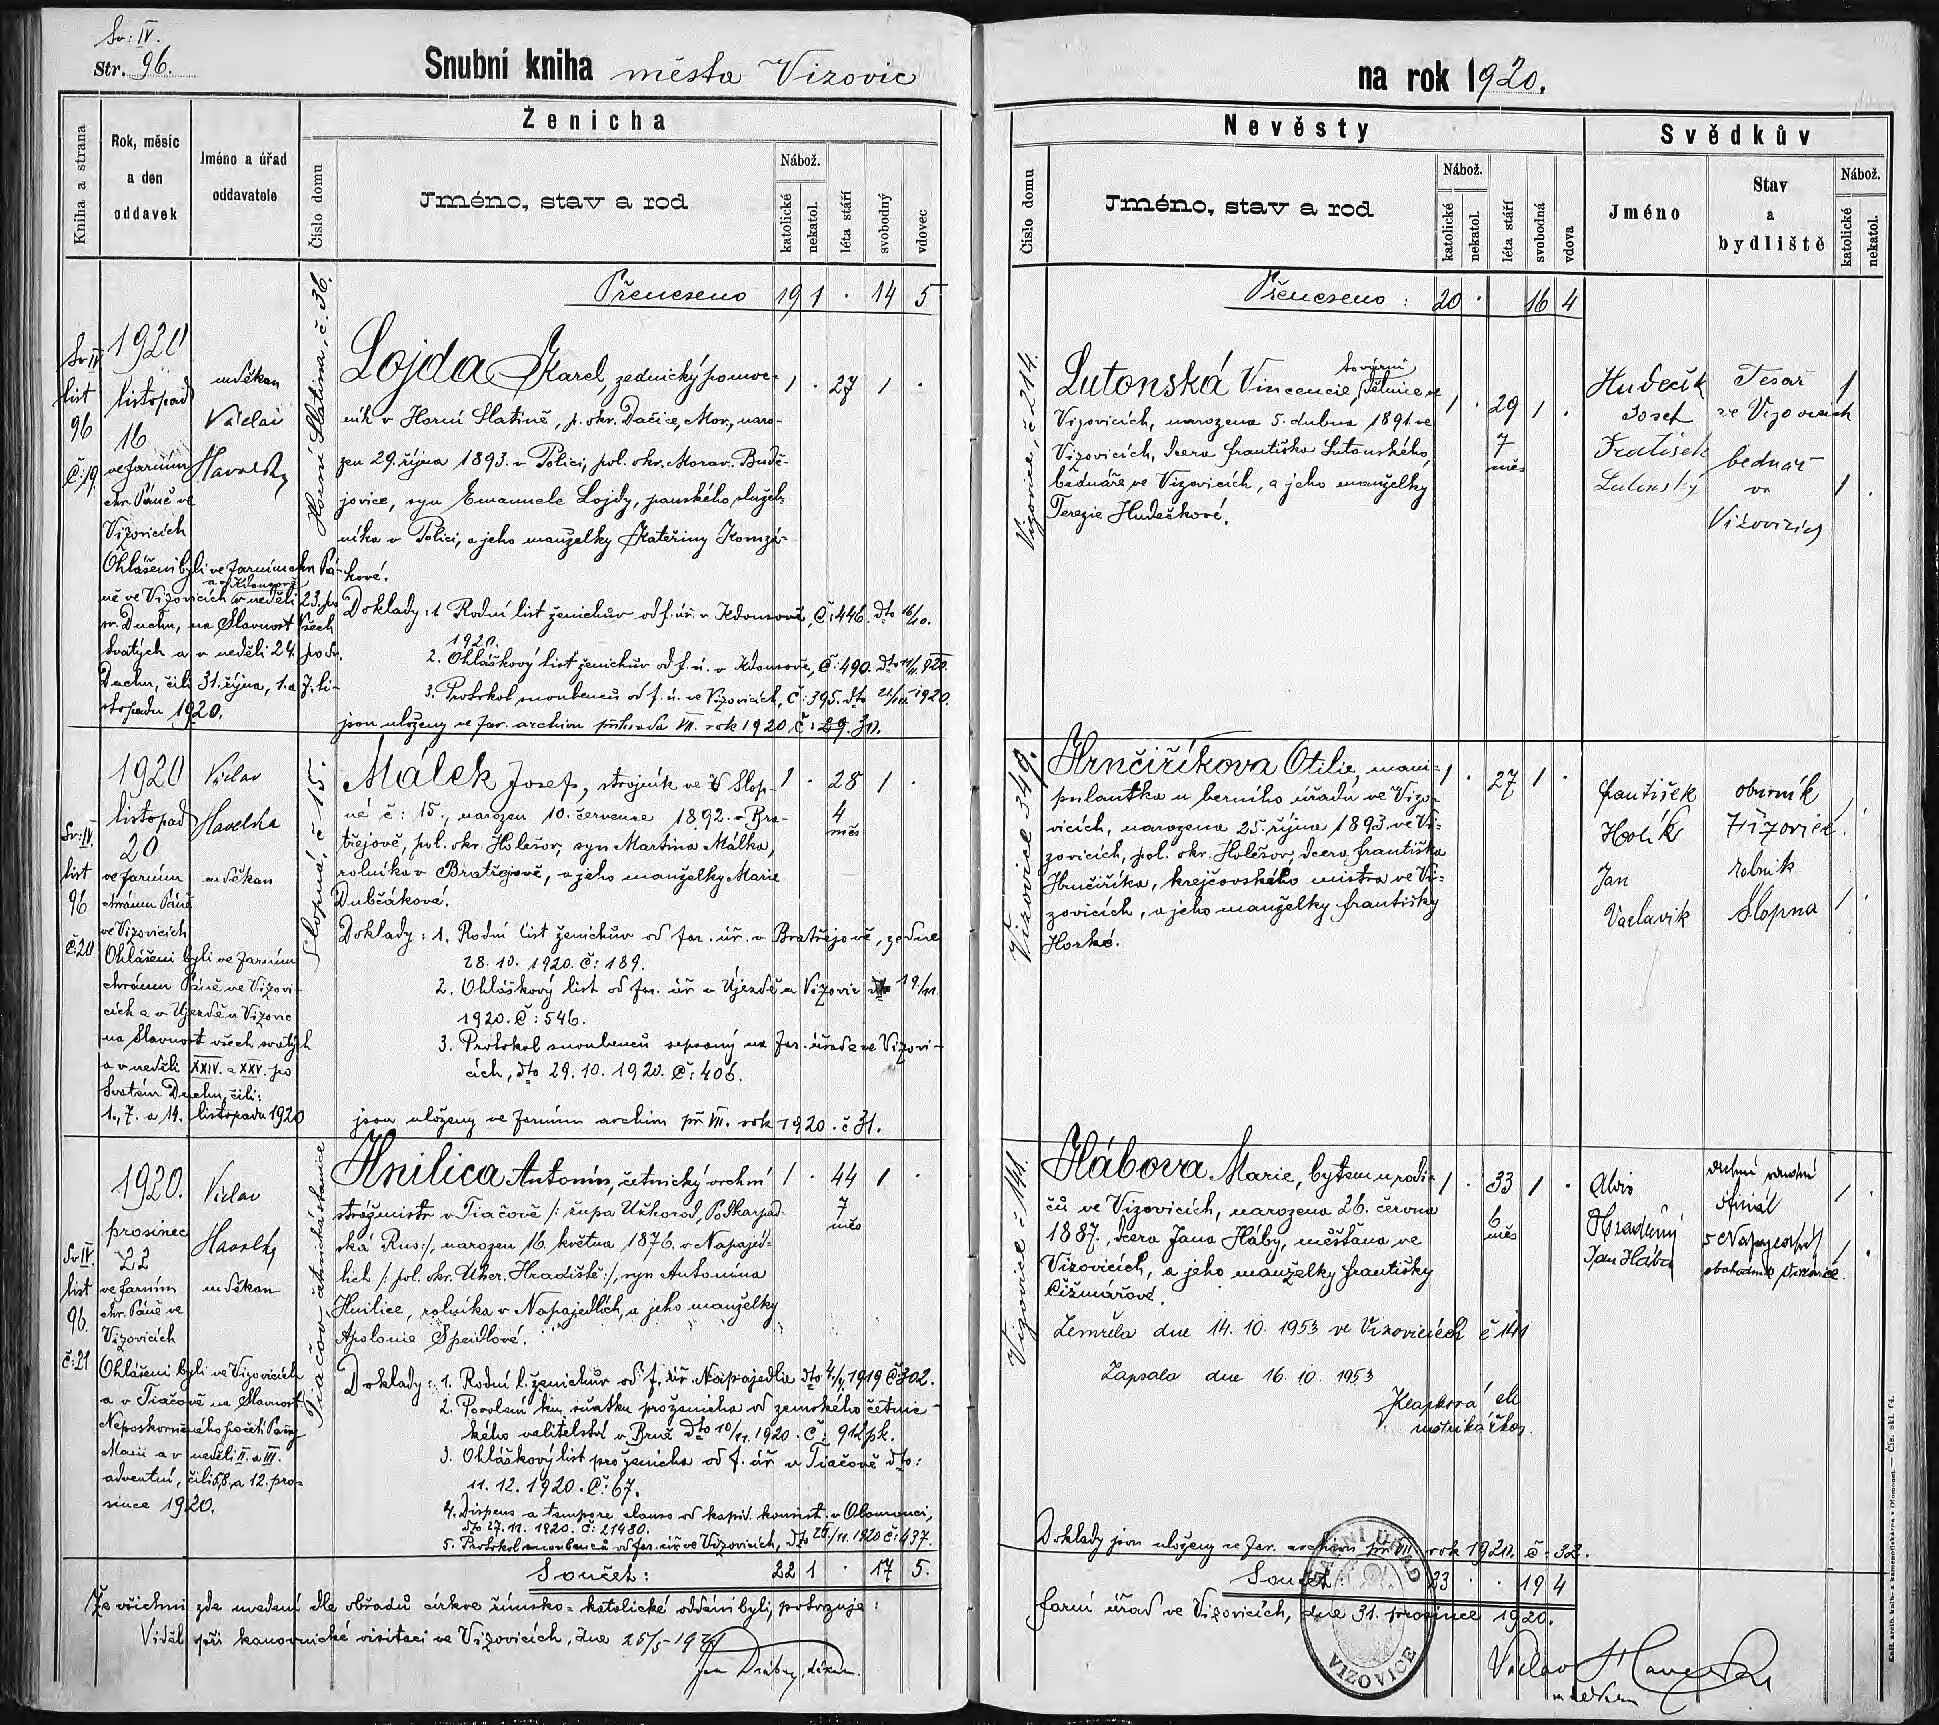 Sv: IV.
Str. 96.
Snubní kniha města Vizovic
na rok 1920.
Kniha a strana
Rok, měsíc
a den
oddavek
Jméno a úřad
oddavatele
Ženicha
Číslo domu
Jméno, stav a rod
Nábož.
katolické
nekatol.
léta stáří
svobodný
vdovec
Přeneseno 19 1 . 14 5
Sv: IV
list
96
č: 19.
1920
listopad
16
ve farním
chr. Páně ve
Vizovicích
Ohlášeni byli ve farním chr. Pá-
ně ve Vizovicích v neděli 23. po
sv. Duchu, na Slavnost Všech
Svatých a v neděli 24. po sv.
Duchu, čili 31. října, 1. a 7. li-
stopadu 1920.
děkan
Václav
Havelka
Horní Slatina, č. 36.
Lojda Karel, zednický pomoc- 1 . 27 1 .
ník v Horní Slatině, p. okr. Dačice, Mor., naro-
zen 29. října 1893. v Polici, pol. okr. Morav. Budě-
jovice, syn Emanuele Lojdy, panského služeb-
níka v Polici, a jeho manželky Kateřiny Komzá-
kové.
Doklady: 1. Rodní list ženichův od f. úř. v Kdousově, Č: 446. dto 16/10.
1920.
2. Ohláškový list ženichův od f. ú. v Kdousově, Č: 490. dto
3. Protokol snoubenců od f. ú. ve Vizovicích, Č: 395. dto 1920.
jsou uloženy ve far. archivu přihrada VII. rok 1920. Č: 30.
Sv: IV.
list
96
č: 20
1920
listopad
20
ve farním
chrámu Páně
ve Vizovicích
Ohlášeni byli ve farním
chrámu Páně ve Vizovi-
cích a v Újezdě u Vizovic
na Slavnost všech svatých
a v neděli XXIV. a XXV. po
Svatém Duchu, čili:
1., 7. a 14. listopadu 1920
Václav
Havelka
děkan
Slopná, č 15.
Málek Josef, strojník ve Slop- 1 . 28 1 .
né č: 15., narozen 10. července 1892. v Bra- 4
měs
třejově, pol. okr. Holešov, syn Martina Málka,
rolníka v Bratřejově, a jeho manželky Marie
Dubčákové.
Doklady: 1. Rodní list ženichův od far. úř. v Bratřejově, ze dne
28. 10. 1920. č: 189.
2. Ohláškový list od far. úř. v Újezdě u Vizovic dto 19/11
1920. Č: 546.
3. Protokol snoubenců sepsaný na far. úřadě ve Vizovi-
cích, dto 29. 10. 1920. Č: 406.
jsou uloženy ve farním archivu př. VII. rok 1920. č 31.
Sv: IV.
list
96.
č: 21
1920.
prosinec
22
ve farním
chr. Páně ve
Vizovicích
Ohlášeni byli ve Vizovicích
a v Tiačově na Slavnost
Neposkvrněného početí Panny
Marie a v neděli II. a III.
adventní, čili 5., 8. a 12. pro-
since 1920.
Václav
Havelka
děkan
Tiačovo četnická stanice
Hnilica Antonín, četnický vrchní 1 . 44 1 .
strážmistr v Tiačově /: župa Užhorod, Podkarpad- 7
měs
ská Rus:/, narozen 16. května 1876. v Napajed-
lích /: pol. okr. Uher. Hradiště:/, syn Antonína
Hnilice, rolníka v Napajedlích, a jeho manželky
Apolonie Speidlové.
Doklady: 1. Rodní l. ženichův od f. úř. Napajedla dto 1919 Č 302.
2. Povolení ku sňatku pro ženicha od zemského četnic-
kého velitelství v Brně dto 10/11. 1920. Č: 912 pk.
3. Ohláškový list pro ženicha od f. úř. v Tiačově dto:
11. 12. 1920. Č: 67.
4. Dispens a tempore clauso od kapit. konsist. v Olomouci,
dto 27. 11. 1920. č: 21480.
5. Protokol snoubenců od far. úř. ve Vizovicích, dto 1920 č: 437.
Součet: 22 1 . 17 5.
Že všichni zde uvedení dle obřadů církve římsko-katolické oddáni byli, potvrzuje:
Viděl při kanovnické visitaci ve Vizovicích, dne 25/5 1921
Jan Drábek, děkan.
Nevěsty
Číslo domu
Jméno, stav a rod
Nábož.
katolické
nekatol.
léta stáří
svobodná
vdova
Svědkův
Jméno
Stav
a
bydliště
Nábož.
katolické
nekatol.
Přeneseno: 20 . 16 4
Vizovice, č 214.
tovární
Lutonská Vincencie, dělnice ve 1 . 29 1 .
Vizovicích, narozena 5. dubna 1891. ve 7
měs
Vizovicích, dcera Františka Lutonského,
bednáře ve Vizovicích, a jeho manželky
Terezie Hudečkové.
Hudeček
Josef
Tesař
ve Vizovicích
1
František
Lutonský
bednář
ve
Vizovicích
1 .
Vizovice 349.
Hrnčiříkova Otilie, mani- 1 . 27 1 .
pulantka u berního úřadu ve Vizo-
vicích, narozena 25. října 1893. ve Vi-
zovicích, pol. okr. Holešov, dcera Františka
Hrnčiříka, krejčovského mistra ve Vi-
zovicích, a jeho manželky Františky
Horké.
František
Holík
obuvník
Vizovice
1 .
Jan
Vaclavik
rolník
Slopna
1 .
Vizovice č 141.
Hábova Marie, bytem u rodi- 1 . 33 1 .
čů ve Vizovicích, narozena 26. června 6
měs
1887., dcera Jana Háby, měšťana ve
Vizovicích, a jeho manželky Františky
Čižmářové.
Zemřela dne 14. 10. 1953 ve Vizovicích č 141
Zapsala dne 16. 10. 1953
Alois
Hradečný
oficiál
v Napajedlích
1 .
Jan Hába
obchodník Vizovice
1 .
Doklady jsou uloženy ve far. archivu př. VII rok 1920. č: 32.
Součet: 23 . . 19 4
Farní úřad ve Vizovicích, dne 31. prosince 1920.
FARNÍ ÚŘAD
VIZOVICE
Václav Havelka
děkan